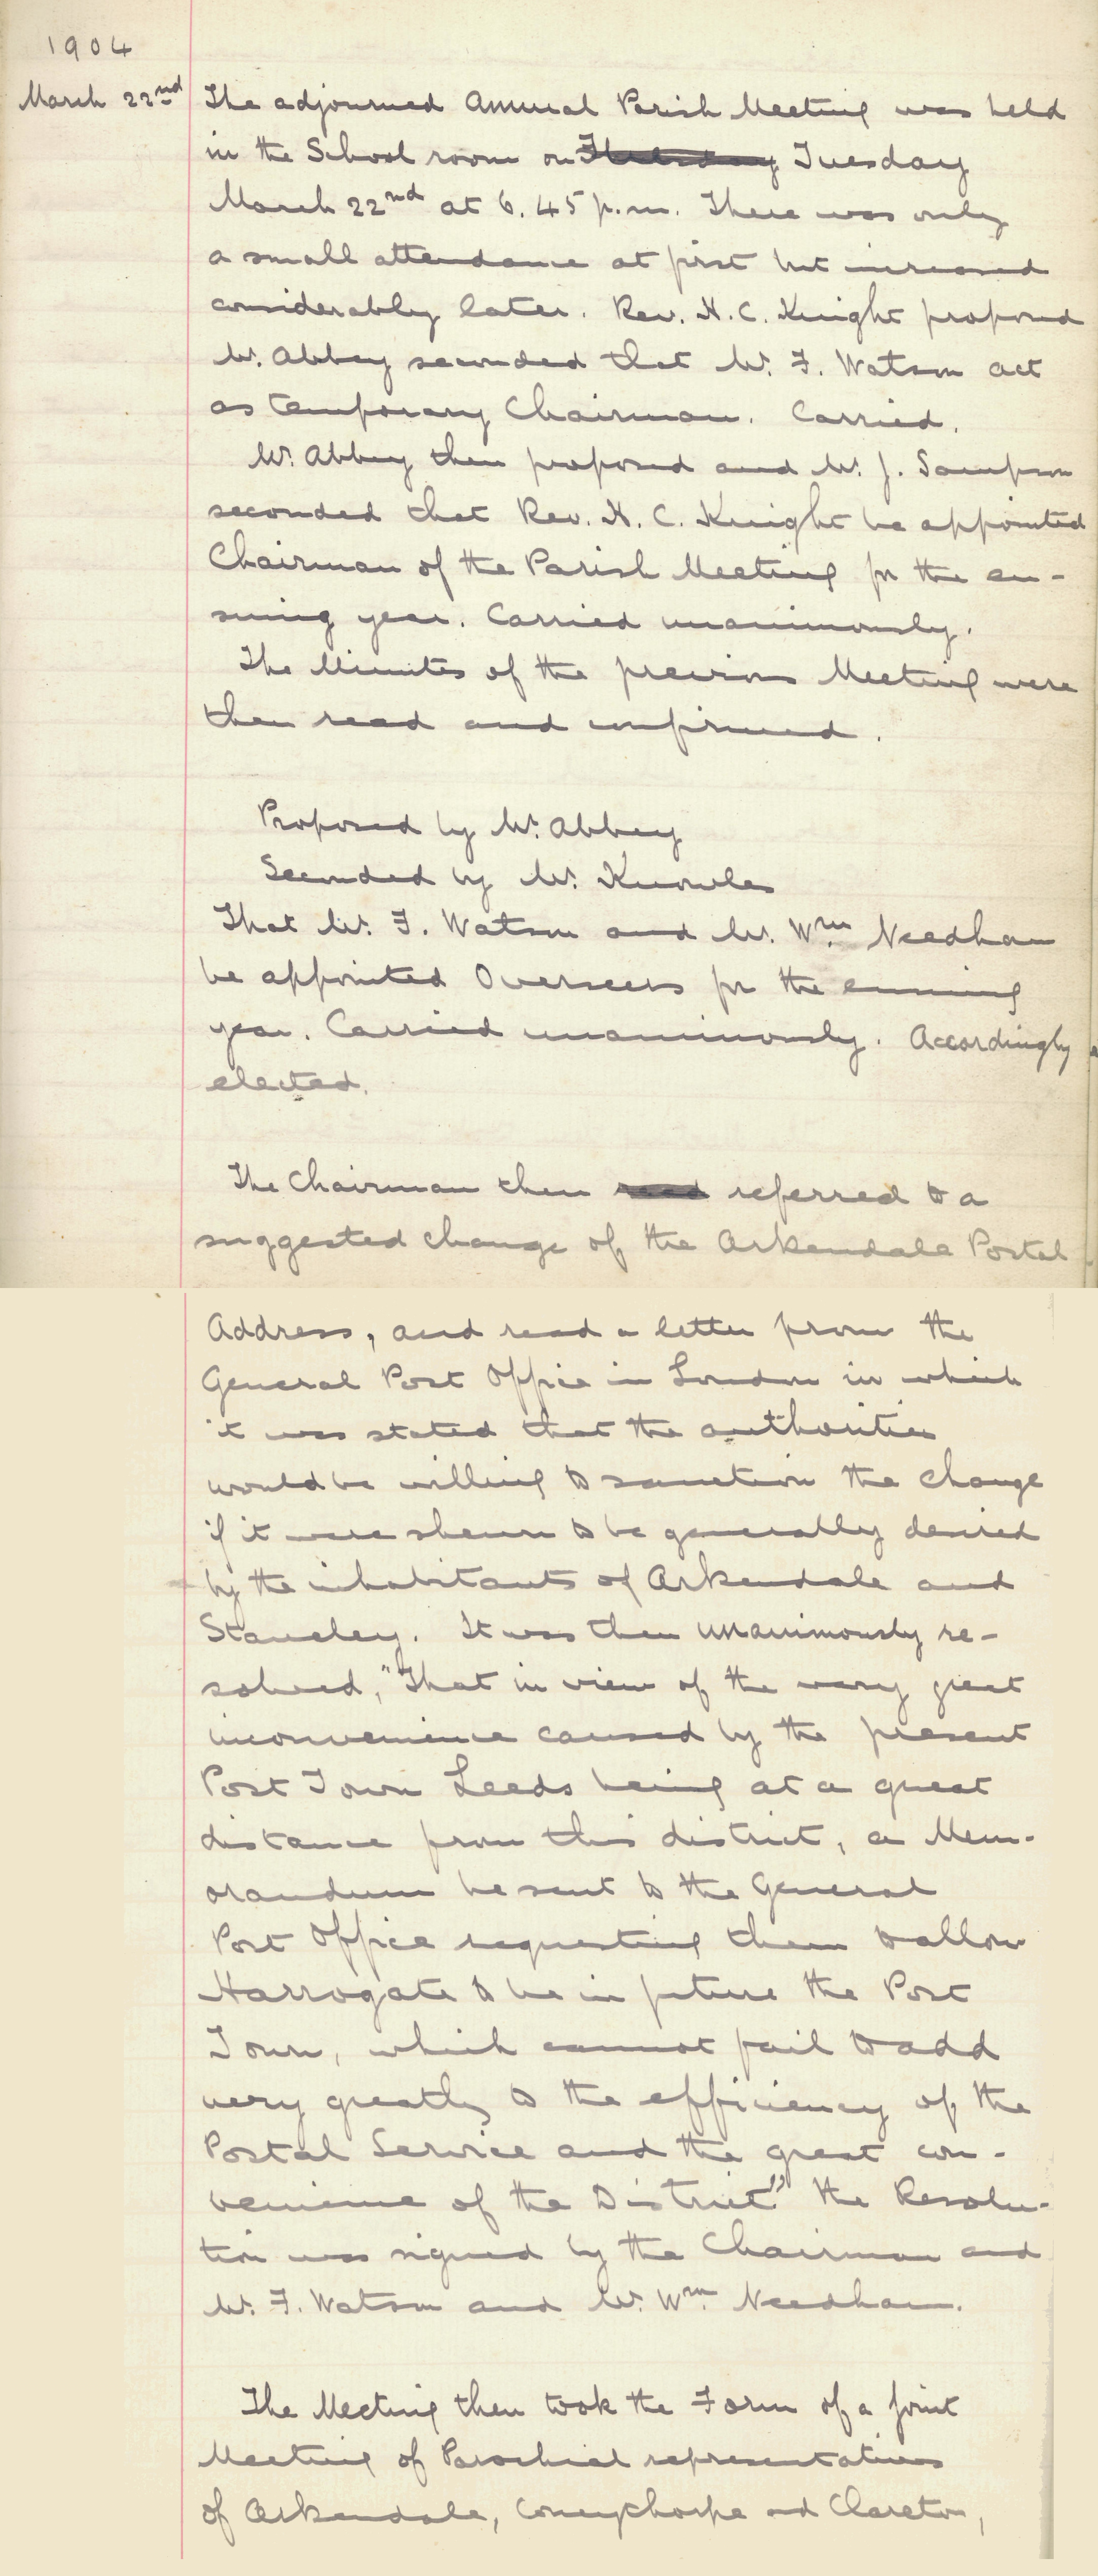 1904
March 22nd
The adjourned Annual Parish Meeting was held
in the School room on Thursday Tuesday
March 22nd at 6.45 p.m. There was only
a small attendance at first but increased
considerably later. Rev. H. C. Knight proposed
Mr. Abbey seconded that Mr. F. Watson act
as temporary Chairman. Carried.
Mr. Abbey then proposed and Mr. J. Sampson
seconded that Rev. H. C. Knight be appointed
Chairman of the Parish Meeting for the en-
suing year. Carried unanimously.
The Minutes of the previous Meeting were
then read and confirmed.
Proposed by Mr. Abbey
Seconded by Mr. Knowles
That Mr. F. Watson and Mr. Wm. Needham
be appointed Overseers for the ensuing
year. Carried unanimously. Accordingly
elected.
The Chairman then read referred to a
suggested change of the Arkendale Postal
Address, and read a letter from the
General Post Office in London in which
it was stated that the authorities
would be willing to sanction the change
if it were shewn to be generally desired
by the inhabitants of Arkendale and
Staveley. It was then unanimously re-
solved, "That in view of the very great
inconvenience caused by the present
Post Town Leeds being at a great
distance from this district, a Mem-
orandum be sent to the General
Post Office requesting them to allow
Harrogate to be in future the Post
Town, which cannot fail to add
very greatly to the efficiency of the
Postal Service and the great con-
venience of the District" the Resolu-
tion was signed by the Chairman and
Mr. F. Watson and Mr. Wm. Needham.
The Meeting then took the Form of a joint
Meeting of Parochial representatives
of Arkendale, Coneythorpe and Clareton,